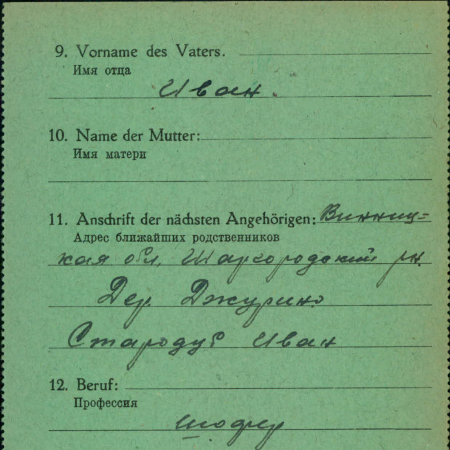 9. Vorname des Vaters.
Имя отца
Иван.
10. Name der Mutter:
Имя матери
11. Anschrift der nächsten Angehörigen: Винниц-
Адрес ближайших родственников
кая обл, Шаргородский рн.
Дер Джурино
Стародуб Иван
12. Beruf:
Профессия
шофер